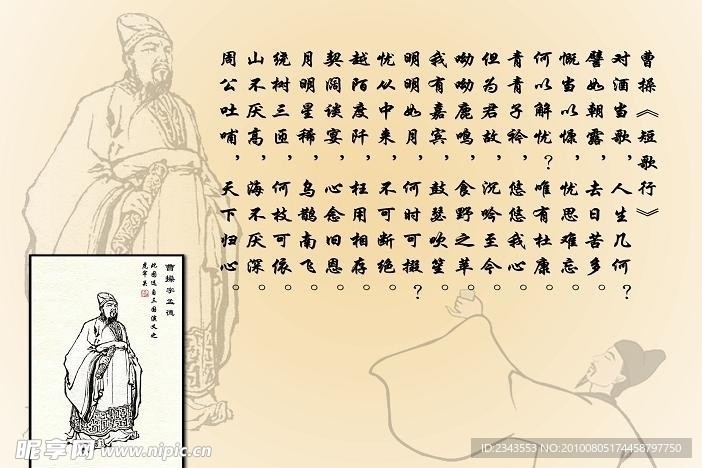 曹操《短歌行》
对酒当歌，人生几何？
譬如朝露，去日苦多。
慨当以慷，忧思难忘。
何以解忧？唯有杜康。
青青子衿，悠悠我心。
但为君故，沉吟至今。
呦呦鹿鸣，食野之苹。
我有嘉宾，鼓瑟吹笙。
明明如月，何时可掇？
忧从中来，不可断绝。
越陌度阡，枉用相存。
契阔谈宴，心念旧恩。
月明星稀，乌鹊南飞。
绕树三匝，何枝可依。
山不厌高，海不厌深。
周公吐哺，天下归心。
曹操字孟德
此图选自三国演义之
昵享网 www.nipic.cn
ID:2343553 NO:20100805174458797750